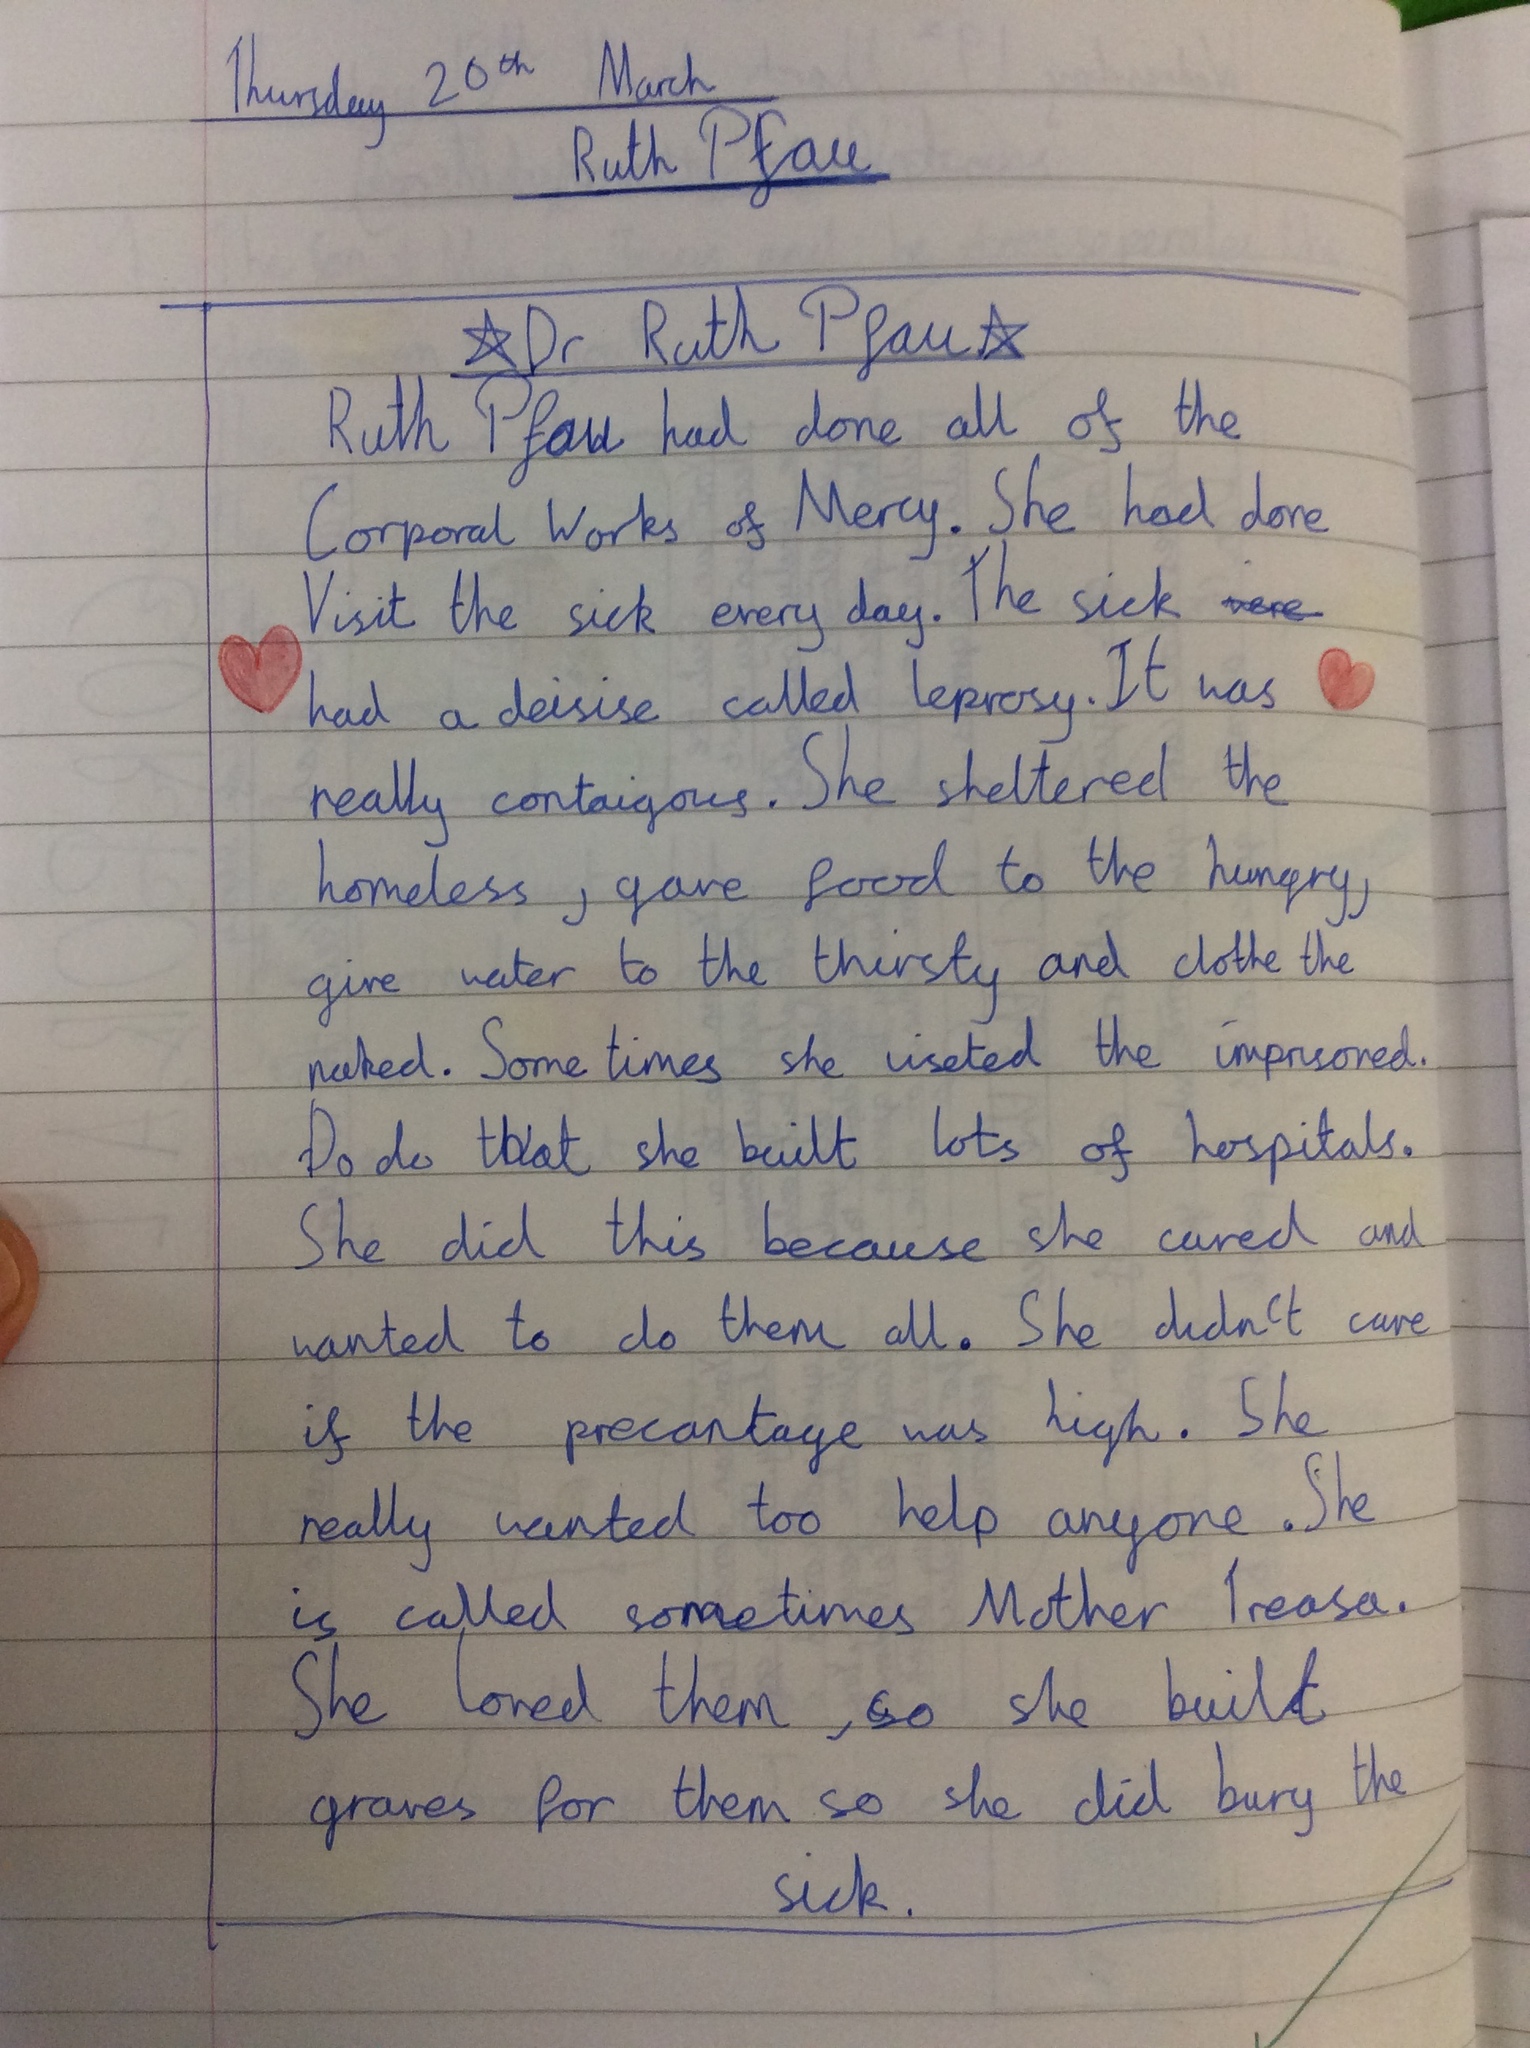 Thursday 20th March
Ruth Pfau
☆Dr Ruth Pfau☆
Ruth Pfau had done all of the
Corporal Works of Mercy. She had done
Visit the sick every day. The sick were
had a deisise called leprosy. It was
really contaigous. She sheltered the
homeless, gave food to the hungry,
give water to the thirsty and clothe the
naked. Some times she viseted the imprisoned.
Do do that she built lots of hospitals.
She did this because she cared and
wanted to do them all. She didn't care
if the precantage was high. She
really wanted too help anyone. She
is called sometimes Mother Treasa.
She loved them, so she built
graves for them so she did bury the
sick.